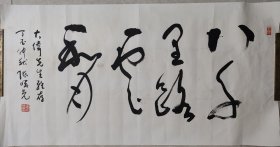 八千
里路
云
和月
大伟先生雅存
丁亥仲秋 张